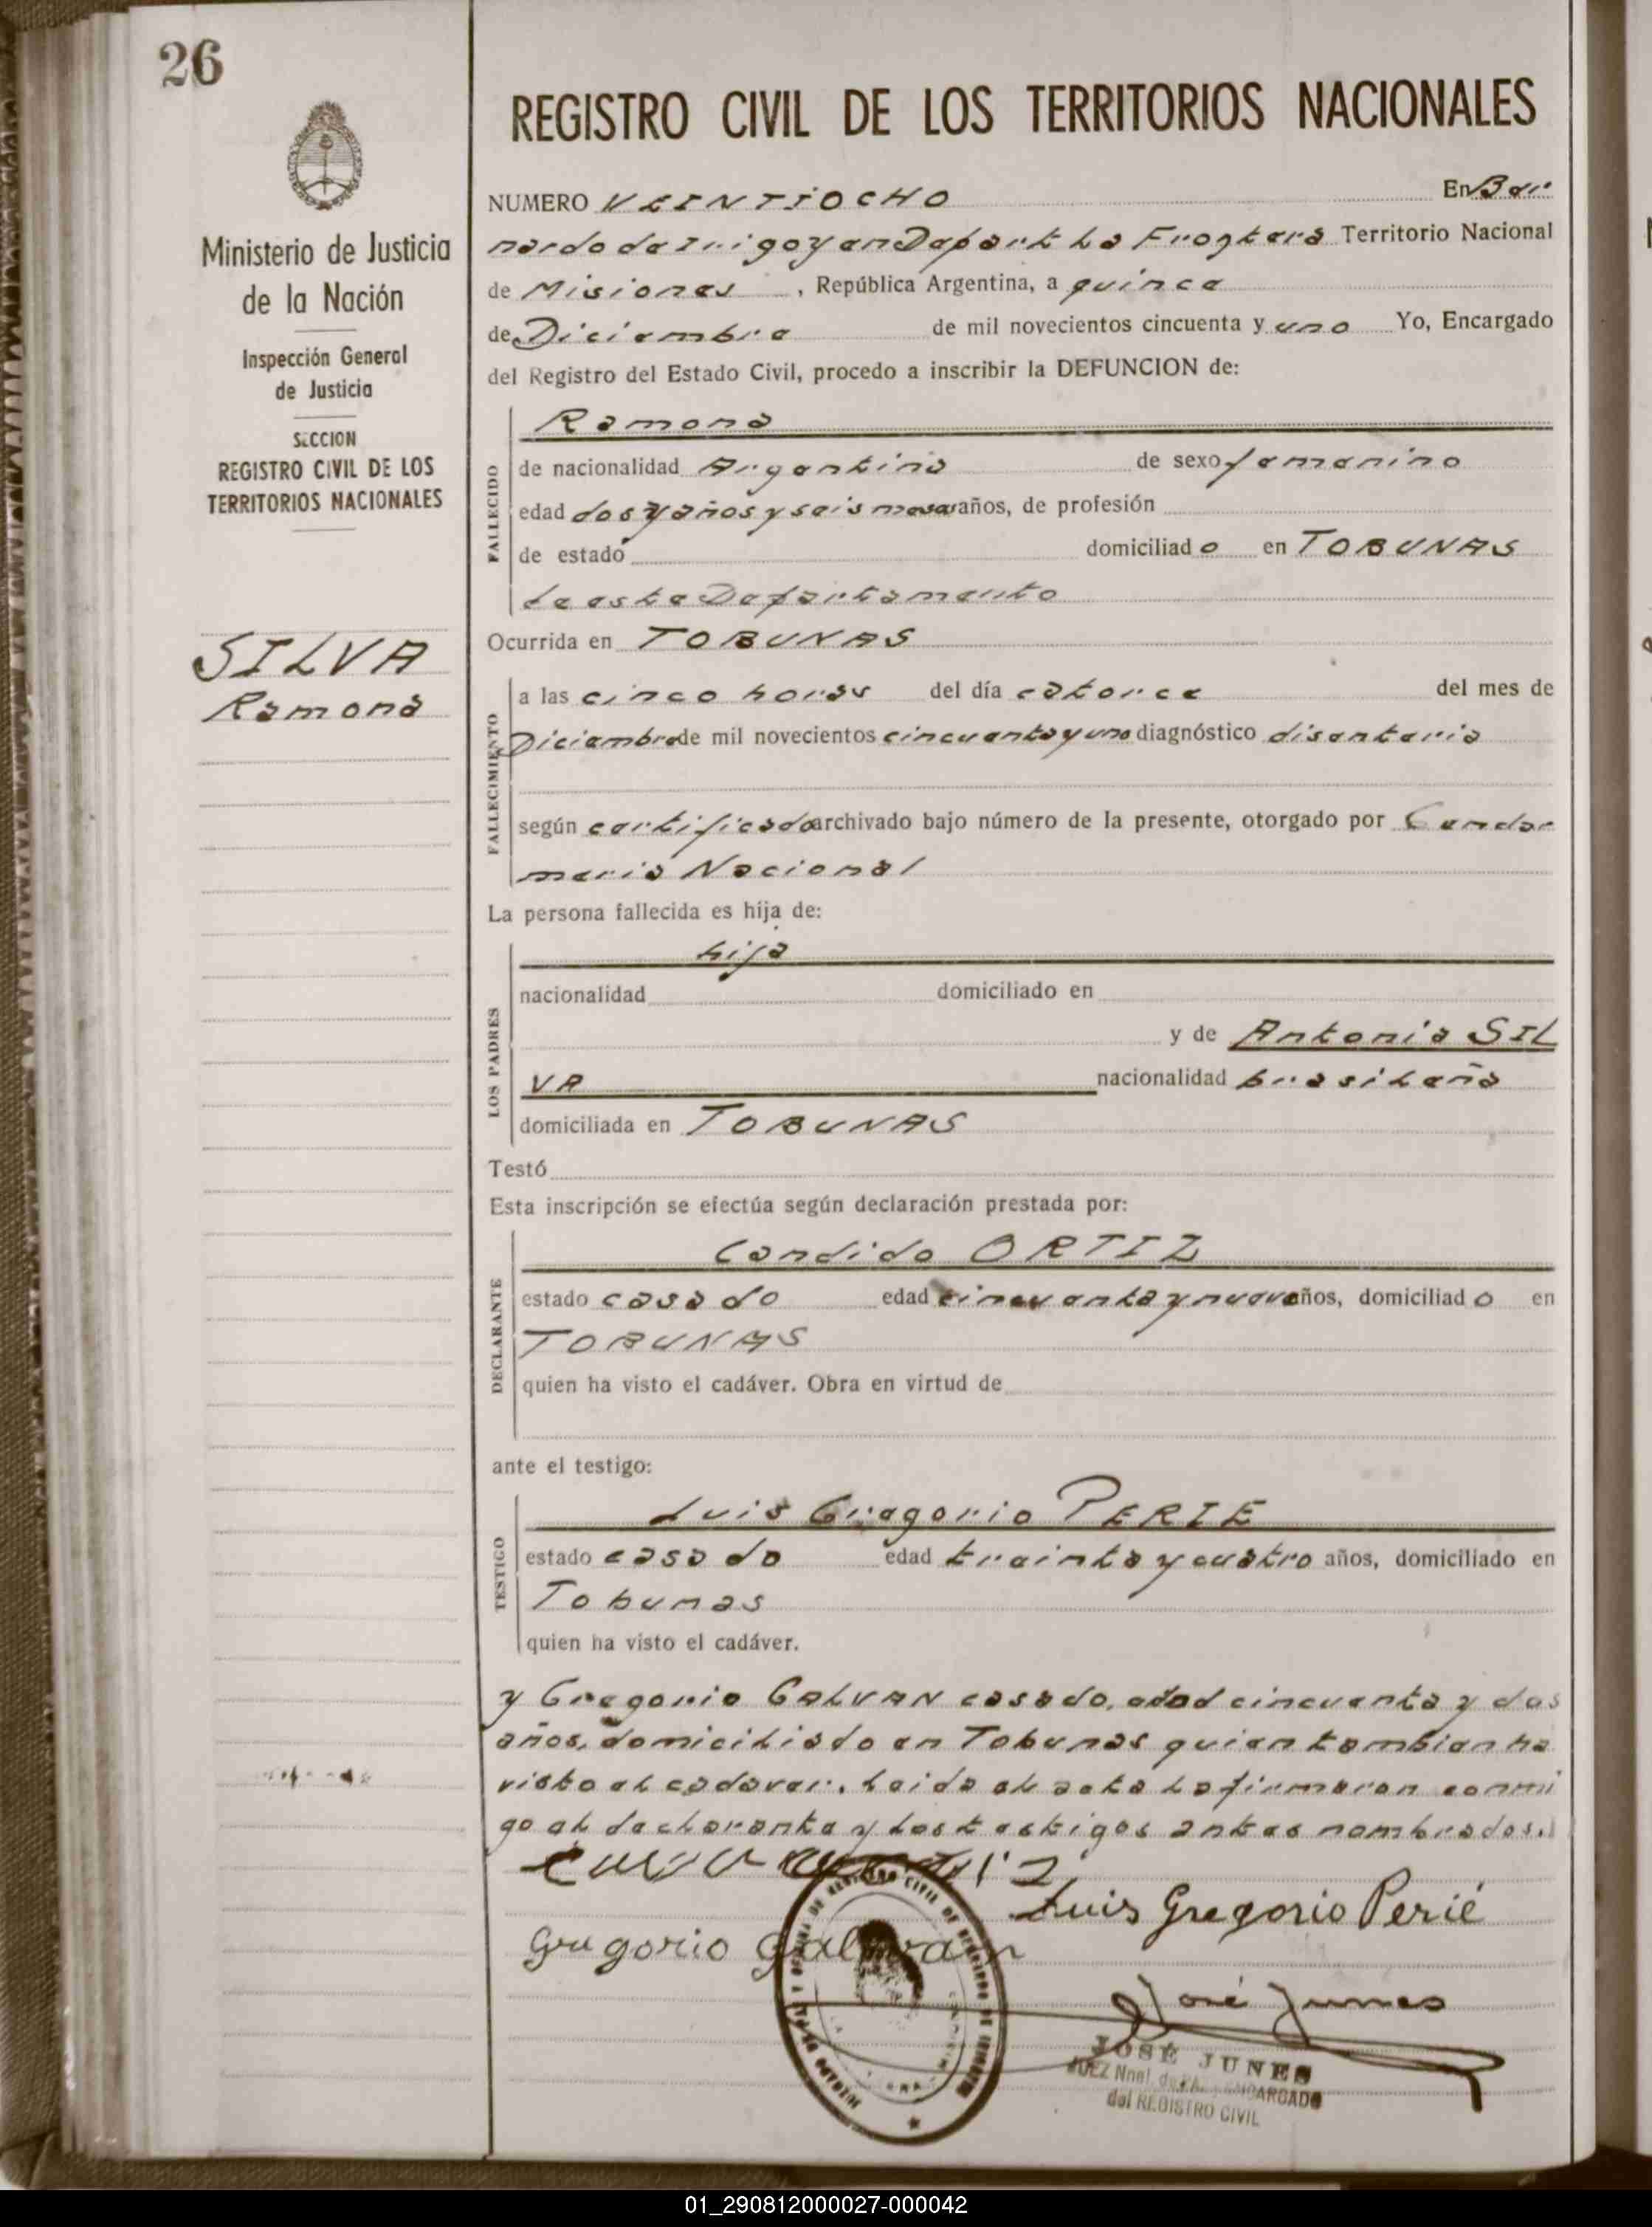 26
Ministerio de Justicia
de la Nación
Inspección General
de Justicia
SECCION
REGISTRO CIVIL DE LOS
TERRITORIOS NACIONALES
SILVA
Ramona
REGISTRO CIVIL DE LOS TERRITORIOS NACIONALES
NUMERO VEINTIOCHO En Ber
nardo de Irigoyen Depart La Frontera Territorio Nacional
de Misiones, República Argentina, a quince
de Diciembre de mil novecientos cincuenta y uno Yo, Encargado
del Registro del Estado Civil, procedo a inscribir la DEFUNCION de:
FALLECIDO
Ramona
de nacionalidad Argentina de sexo femenino
edad dos años y seis meses años, de profesión
de estado domiciliado en TOBUNAS
de este Departamento
Ocurrida en TOBUNAS
FALLECIMIENTO
a las cinco horas del día catorce del mes de
Diciembre de mil novecientos cincuenta y uno diagnóstico disenteria
según certificado archivado bajo número de la presente, otorgado por Gendar
meria Nacional
La persona fallecida es hija de:
LOS PADRES
hija
nacionalidad domiciliado en
y de Antonia SIL
VA nacionalidad brasileña
domiciliada en TOBUNAS
Testó
Esta inscripción se efectúa según declaración prestada por:
DECLARANTE
Candido ORTIZ
estado casado edad cincuenta y nueve años, domiciliado en
TOBUNAS
quien ha visto el cadáver. Obra en virtud de
ante el testigo:
TESTIGO
Luis Gregorio PERIE
estado casado edad treinta y cuatro años, domiciliado en
Tobunas
quien ha visto el cadáver.
y Gregorio GALVAN casado, edad cincuenta y dos
años, domiciliado en Tobunas quien tambien ha
visto el cadaver. Leida el acta la firmaron conmi
go el declarante y los testigos antes nombrados.
Luis Gregorio Perié
Gregorio Galvan
José Junes
JOSÉ JUNES
JUEZ Nnal. de PAZ y ENCARGADO
del REGISTRO CIVIL
01_290812000027-000042